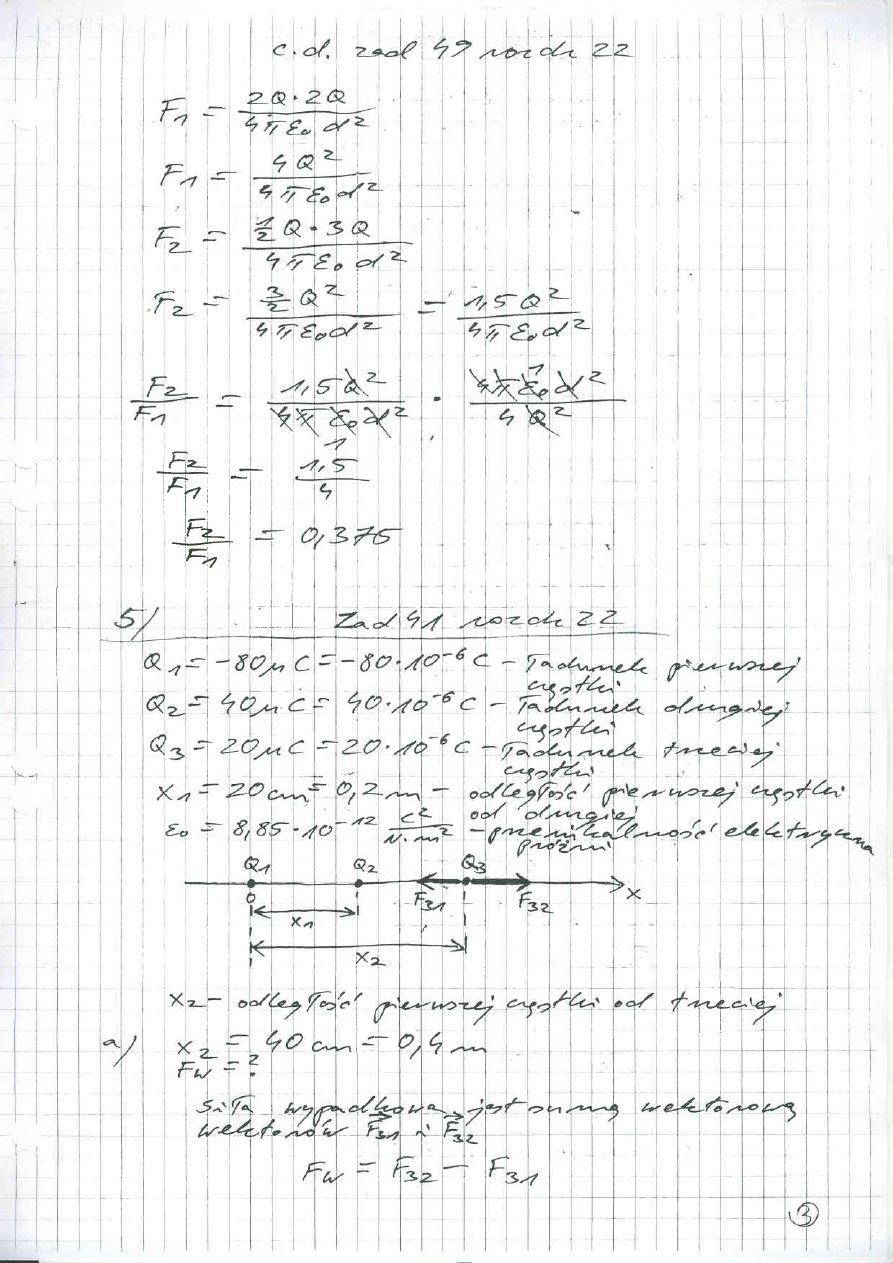 c.d. zad 49 rozdz 22
F₁ = 2Q·2Q / 4πε₀d²
F₁ = 4Q² / 4πε₀d²
F₂ = ½Q·3Q / 4πε₀d²
F₂ = 3/2 Q² / 4πε₀d² = 1,5Q² / 4πε₀d²
F₂/F₁ = 1,5Q² / 4πε₀d² · 4πε₀d² / 4Q²
1
1
F₂/F₁ = 1,5/4
F₂/F₁ = 0,375
5/ Zad 41 rozdz 22
Q₁ = -80μC = -80·10⁻⁶C - ładunek pierwszej
cząstki
Q₂ = 40μC = 40·10⁻⁶C - ładunek drugiej
cząstki
Q₃ = 20μC = 20·10⁻⁶C - ładunek trzeciej
cząstki
x₁ = 20cm = 0,2m - odległość pierwszej cząstki
od drugiej
ε₀ = 8,85·10⁻¹² C²/N·m² - przenikalność elektryczna
próżni
Q₁ Q₂ Q₃
0 F₃₁ F₃₂ x
x₁
x₂
x₂ - odległość pierwszej cząstki od trzeciej
a) x₂ = 40cm = 0,4m
Fw = ?
Siła wypadkowa jest sumą wektorową
wektorów F⃗₃₁ i F⃗₃₂
Fw = F₃₂ - F₃₁
3